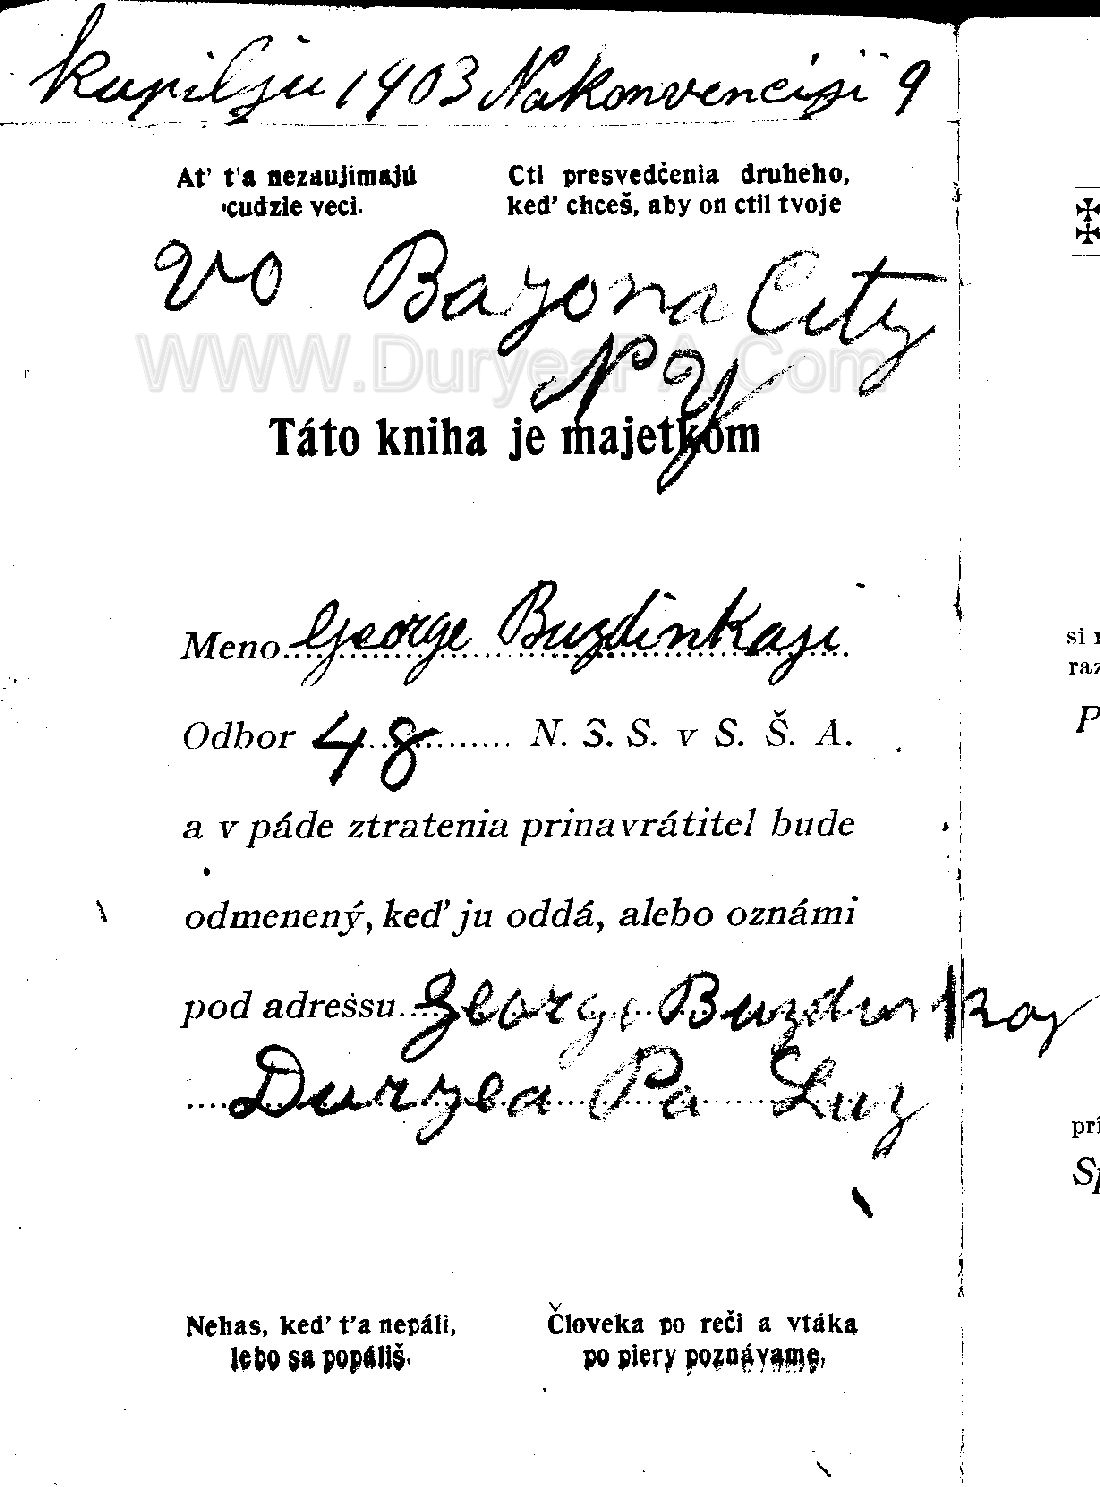 kupilju 1903 Nakonvenciji 9
Ať ťa nezaujímajú
cudzie veci.
Cti presvedčenia druheho,
keď chceš, aby on ctil tvoje
vo Bayona City
N Y
WWW.DuryeaPA.Com
Táto kniha je majetkom
Meno George Buzdinkaji
Odbor 48 N. S. S. v S. Š. A.
a v páde ztratenia prinavrátitel bude
odmenený, keď ju oddá, alebo oznámi
pod adressu George Buzdinkay
Duryea Pa Luz
Nehas, keď ťa nepáli,
lebo sa popáliš.
Človeka po reči a vtáka
po piery poznávame,
si
raz
P
pri
Sp